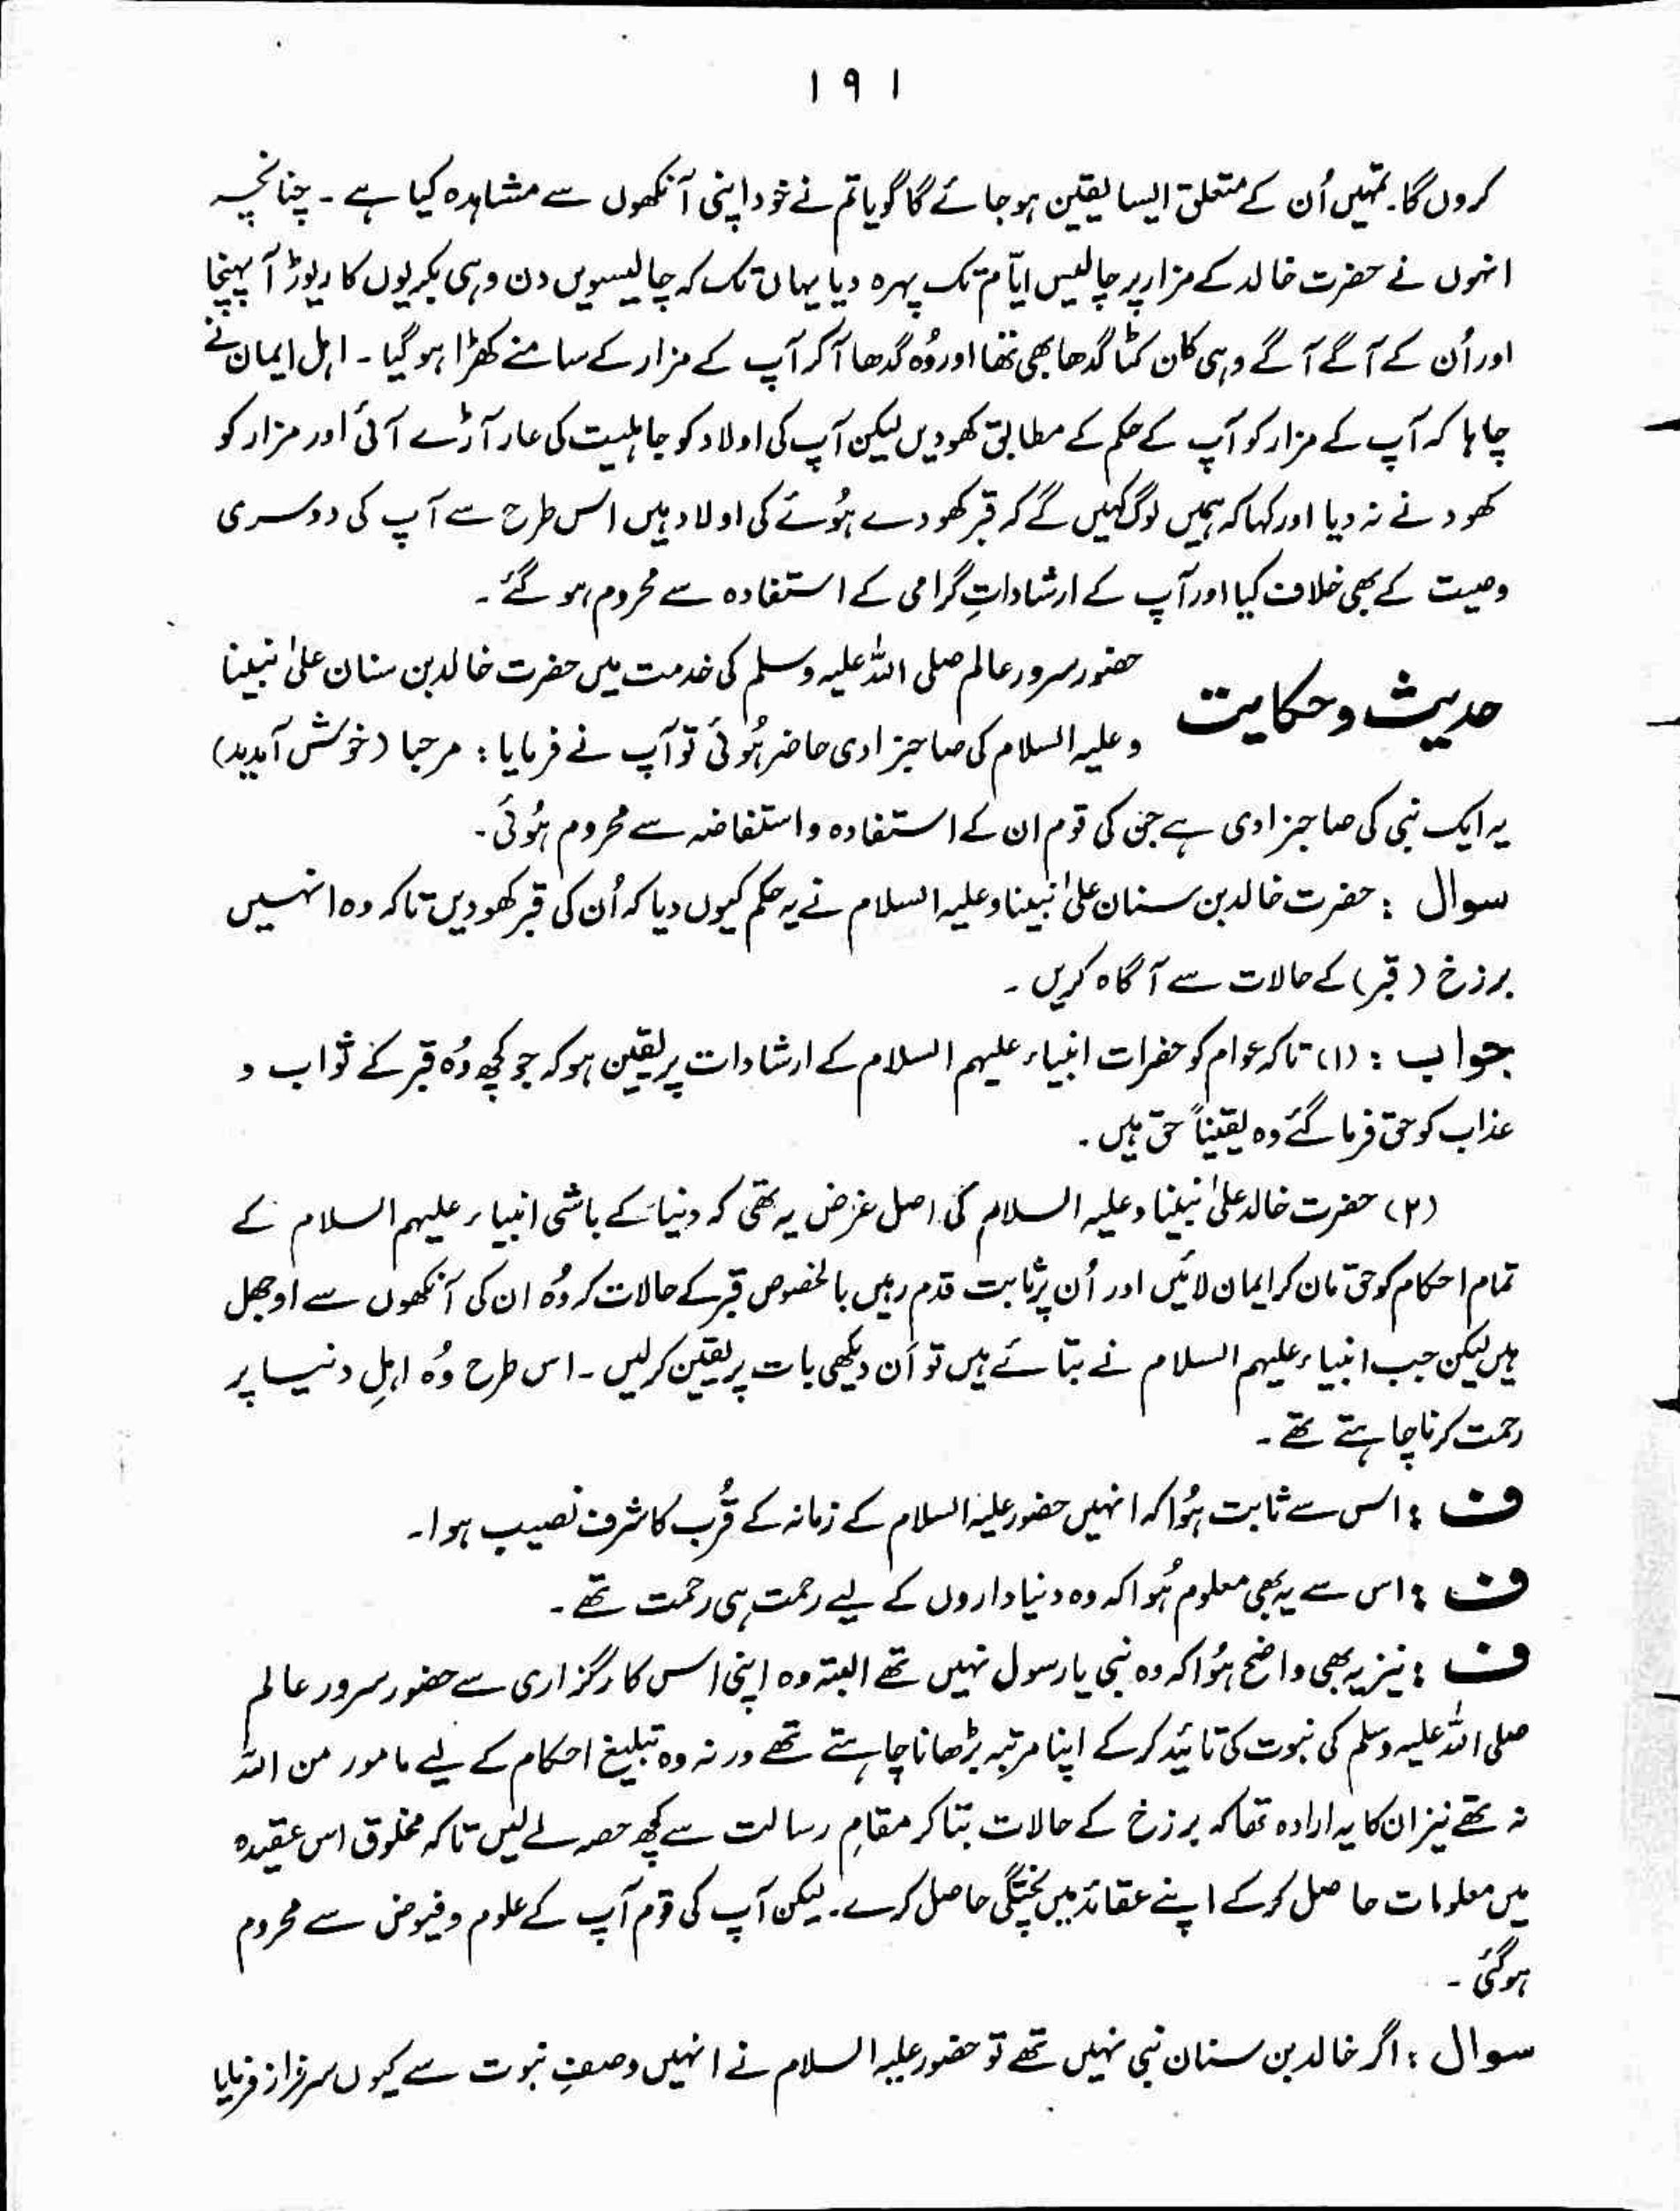 ۱۹۱
کروں گا۔ تمہیں اُن کے متعلق ایسا یقین ہو جائے گا گویا تم نے خود اپنی آنکھوں سے مشاہدہ کیا ہے ۔ چنانچہ
انہوں نے حضرت خالد کے مزار پر چالیس ایّام تک پہرہ دیا یہاں تک کہ چالیسویں دن وہی بکریوں کا ریوڑ آ پہنچا
اور اُن کے آگے آگے وہی کان کٹا گدھا بھی تھا اور وُہ گدھا آکر آپ کے مزار کے سامنے کھڑا ہو گیا ۔ اہل ایمان نے
چاہا کہ آپ کے مزار کو آپ کے حکم کے مطابق کھودیں لیکن آپ کی اولاد کو جاہلیت کی عار آڑے آئی اور مزار کو
کھودنے نہ دیا اور کہا کہ ہمیں لوگ کہیں گے کہ قبر کھودے ہُوئے کی اولاد ہیں اس طرح سے آپ کی دوسری
وصیت کے بھی خلاف کیا اور آپ کے ارشاداتِ گرامی کے استفادہ سے محروم ہو گئے ۔
حدیث و حکایت
حضور سرور عالم صلی اللہ علیہ وسلم کی خدمت میں حضرت خالد بن سنان علیٰ نبینا
و علیہ السلام کی صاحبزادی حاضر ہُوئی تو آپ نے فرمایا : مرحبا (خوش آمدید)
یہ ایک نبی کی صاحبزادی ہے جن کی قوم ان کے استفادہ و استفاضہ سے محروم ہُوئی ۔
سوال : حضرت خالد بن سنان علیٰ نبینا و علیہ السلام نے یہ حکم کیوں دیا کہ اُن کی قبر کھودیں تاکہ وہ انہیں
برزخ (قبر) کے حالات سے آگاہ کریں ۔
جواب : (۱) تاکہ عوام کو حضرات انبیاء علیہم السلام کے ارشادات پر یقین ہو کہ جو کچھ وُہ قبر کے ثواب و
عذاب کو حق فرما گئے وہ یقیناً حق ہیں ۔
(۲) حضرت خالد علیٰ نبینا و علیہ السلام کی اصل غرض یہ تھی کہ دنیا کے باشی انبیاء علیہم السلام کے
تمام احکام کو حق مان کر ایمان لائیں اور اُن پر ثابت قدم رہیں بالخصوص قبر کے حالات کہ وُہ ان کی آنکھوں سے اوجھل
ہیں لیکن جب انبیاء علیہم السلام نے بتائے ہیں تو اَن دیکھی بات پر یقین کرلیں ۔ اس طرح وُہ اہلِ دنیا پر
رحمت کرنا چاہتے تھے ۔
ف : اس سے ثابت ہُوا کہ انہیں حضور علیہ السلام کے زمانہ کے قُرب کا شرف نصیب ہوا ۔
ف : اس سے یہ بھی معلوم ہُوا کہ وہ دنیا داروں کے لیے رحمت ہی رحمت تھے ۔
ف : نیز یہ بھی واضح ہُوا کہ وہ نبی یا رسول نہیں تھے البتہ وہ اپنی اس کارگزاری سے حضور سرور عالم
صلی اللہ علیہ وسلم کی نبوت کی تائید کرکے اپنا مرتبہ بڑھانا چاہتے تھے ورنہ وہ تبلیغ احکام کے لیے مامور من اللہ
نہ تھے نیز ان کا یہ ارادہ تھا کہ برزخ کے حالات بتا کر مقامِ رسالت سے کچھ حصہ لے لیں تاکہ مخلوق اس عقیدہ
میں معلومات حاصل کرکے اپنے عقائد میں پختگی حاصل کرے ۔ لیکن آپ کی قوم آپ کے علوم و فیوض سے محروم
ہو گئی ۔
سوال : اگر خالد بن سنان نبی نہیں تھے تو حضور علیہ السلام نے انہیں وصفِ نبوت سے کیوں سرفراز فرمایا